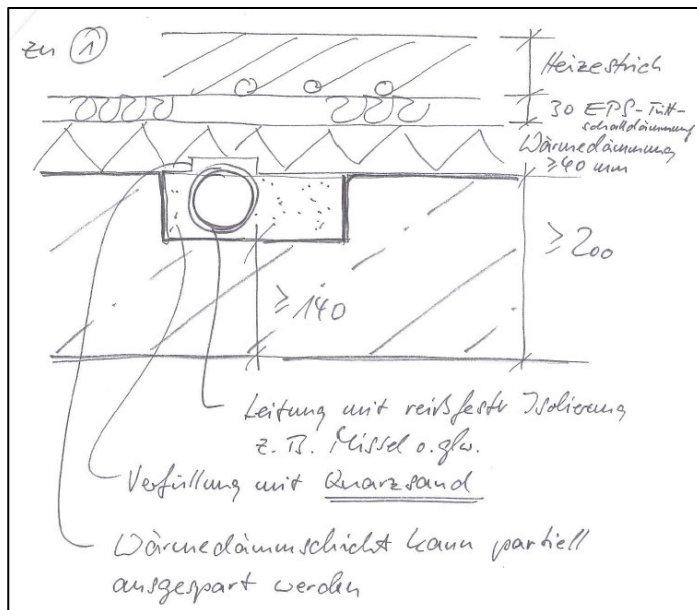 zu ①
Heizestrich
30 EPS-Tritt-
schalldämmung
Wärmedämmung
≥40 mm
≥200
≥140
Leitung mit reißfester Isolierung
z.B. Missel o.glw.
Verfüllung mit Quarzsand
Wärmedämmschicht kann partiell
ausgespart werden